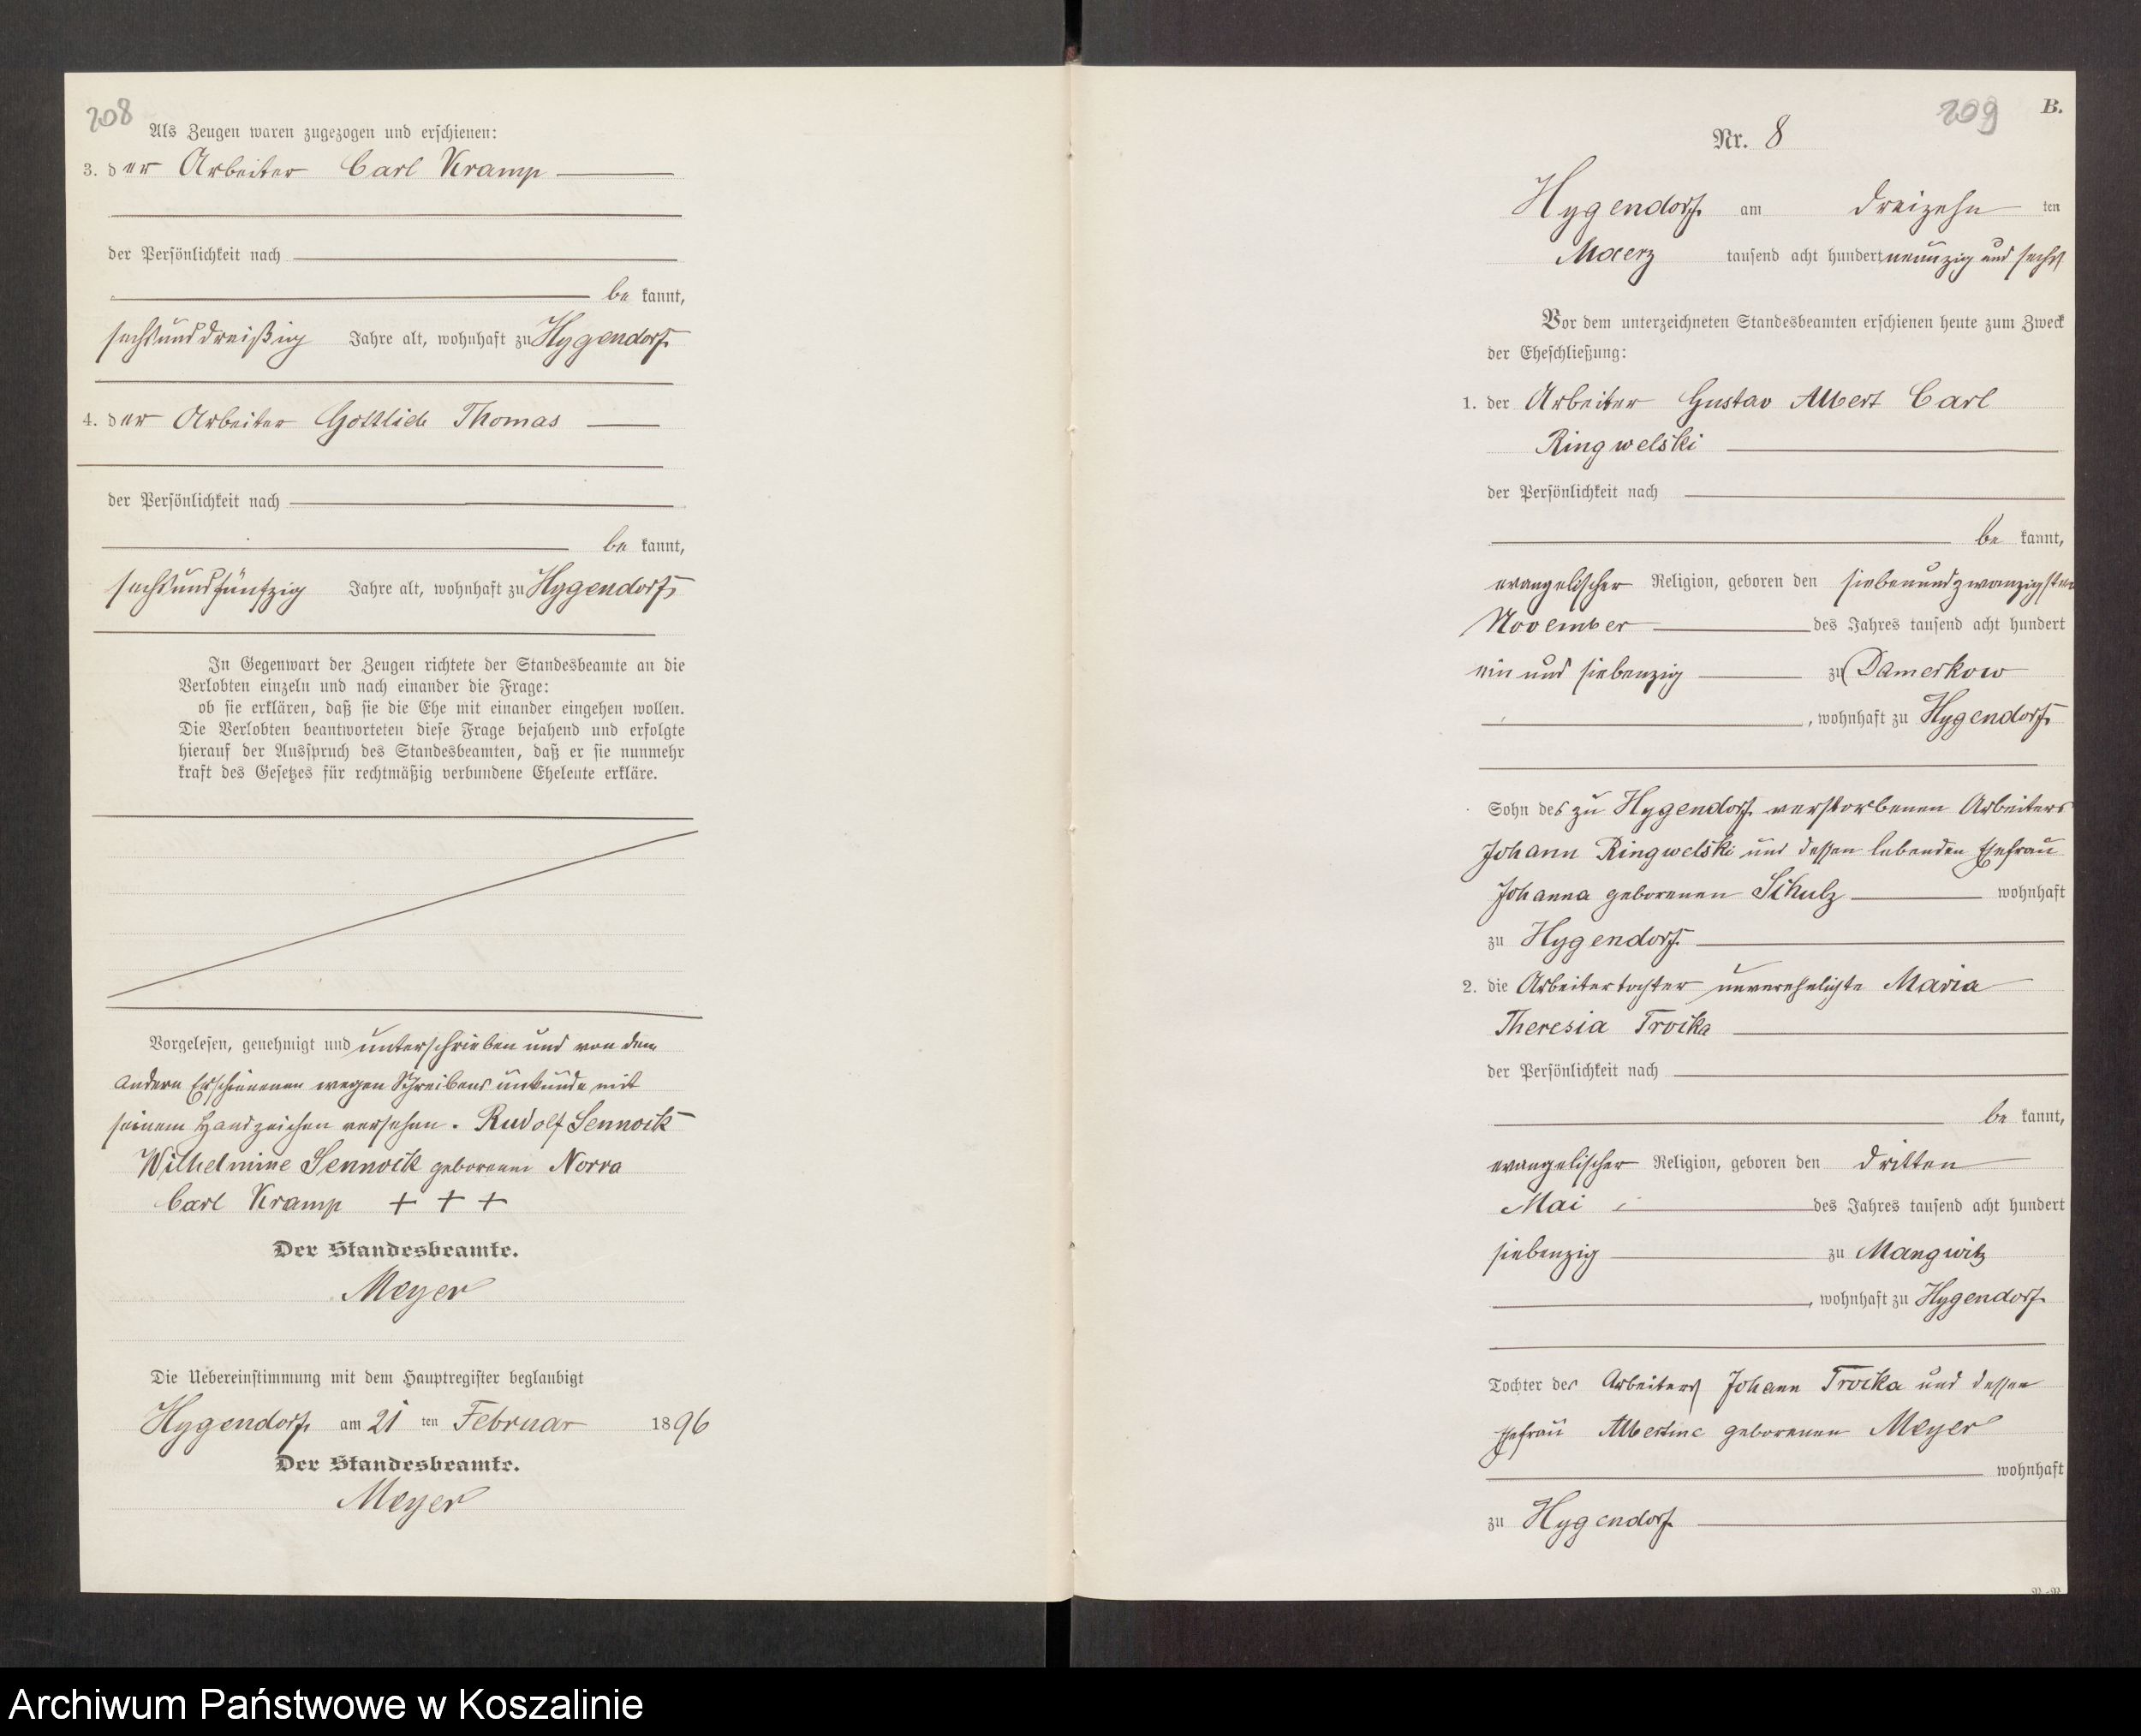 208
Als Zeugen waren zugezogen und erschienen:
3. der Arbeiter Carl Kramp
der Persönlichkeit nach
be kannt,
sechsunddreißig Jahre alt, wohnhaft zu Hygendorf
4. der Arbeiter Gottlieb Thomas
der Persönlichkeit nach
be kannt,
sechsundfünfzig Jahre alt, wohnhaft zu Hygendorf
In Gegenwart der Zeugen richtete der Standesbeamte an die
Verlobten einzeln und nach einander die Frage:
ob sie erklären, daß sie die Ehe mit einander eingehen wollen.
Die Verlobten beantworteten diese Frage bejahend und erfolgte
hierauf der Ausspruch des Standesbeamten, daß er sie nunmehr
kraft des Gesetzes für rechtmäßig verbundene Eheleute erkläre.
Vorgelesen, genehmigt und unterschrieben und von dem
andern Erschienenen wegen Schreibens unkunde mit
seinem Handzeichen versehen. Rudolf Sennock
Wilhelmine Sennock geborenen Norra
Carl Kramp + + +
Der Standesbeamte.
Meyer
Die Uebereinstimmung mit dem Hauptregister beglaubigt
Hygendorf am 21 ten Februar 1896
Der Standesbeamte.
Meyer
209
B.
Nr. 8
Hygendorf am dreizehn ten
Maerz tausend acht hundert neunzig und sechs
Vor dem unterzeichneten Standesbeamten erschienen heute zum Zweck
der Eheschließung:
1. der Arbeiter Gustav Albert Carl
Ringwelski
der Persönlichkeit nach
be kannt,
evangelischer Religion, geboren den siebenundzwanzigsten
November des Jahres tausend acht hundert
ein und siebenzig zu Damerkow
, wohnhaft zu Hygendorf
Sohn des zu Hygendorf verstorbenen Arbeiters
Johann Ringwelski und dessen lebenden Ehefrau
Johanna geborenen Schulz wohnhaft
zu Hygendorf
2. die Arbeitertochter unverehelichte Maria
Theresia Troika
der Persönlichkeit nach
be kannt,
evangelischer Religion, geboren den dritten
Mai des Jahres tausend acht hundert
siebenzig zu Mangwitz
, wohnhaft zu Hygendorf
Tochter des Arbeiters Johann Troika und dessen
Ehefrau Albertine geborenen Meyer
wohnhaft
zu Hygendorf
Archiwum Państwowe w Koszalinie